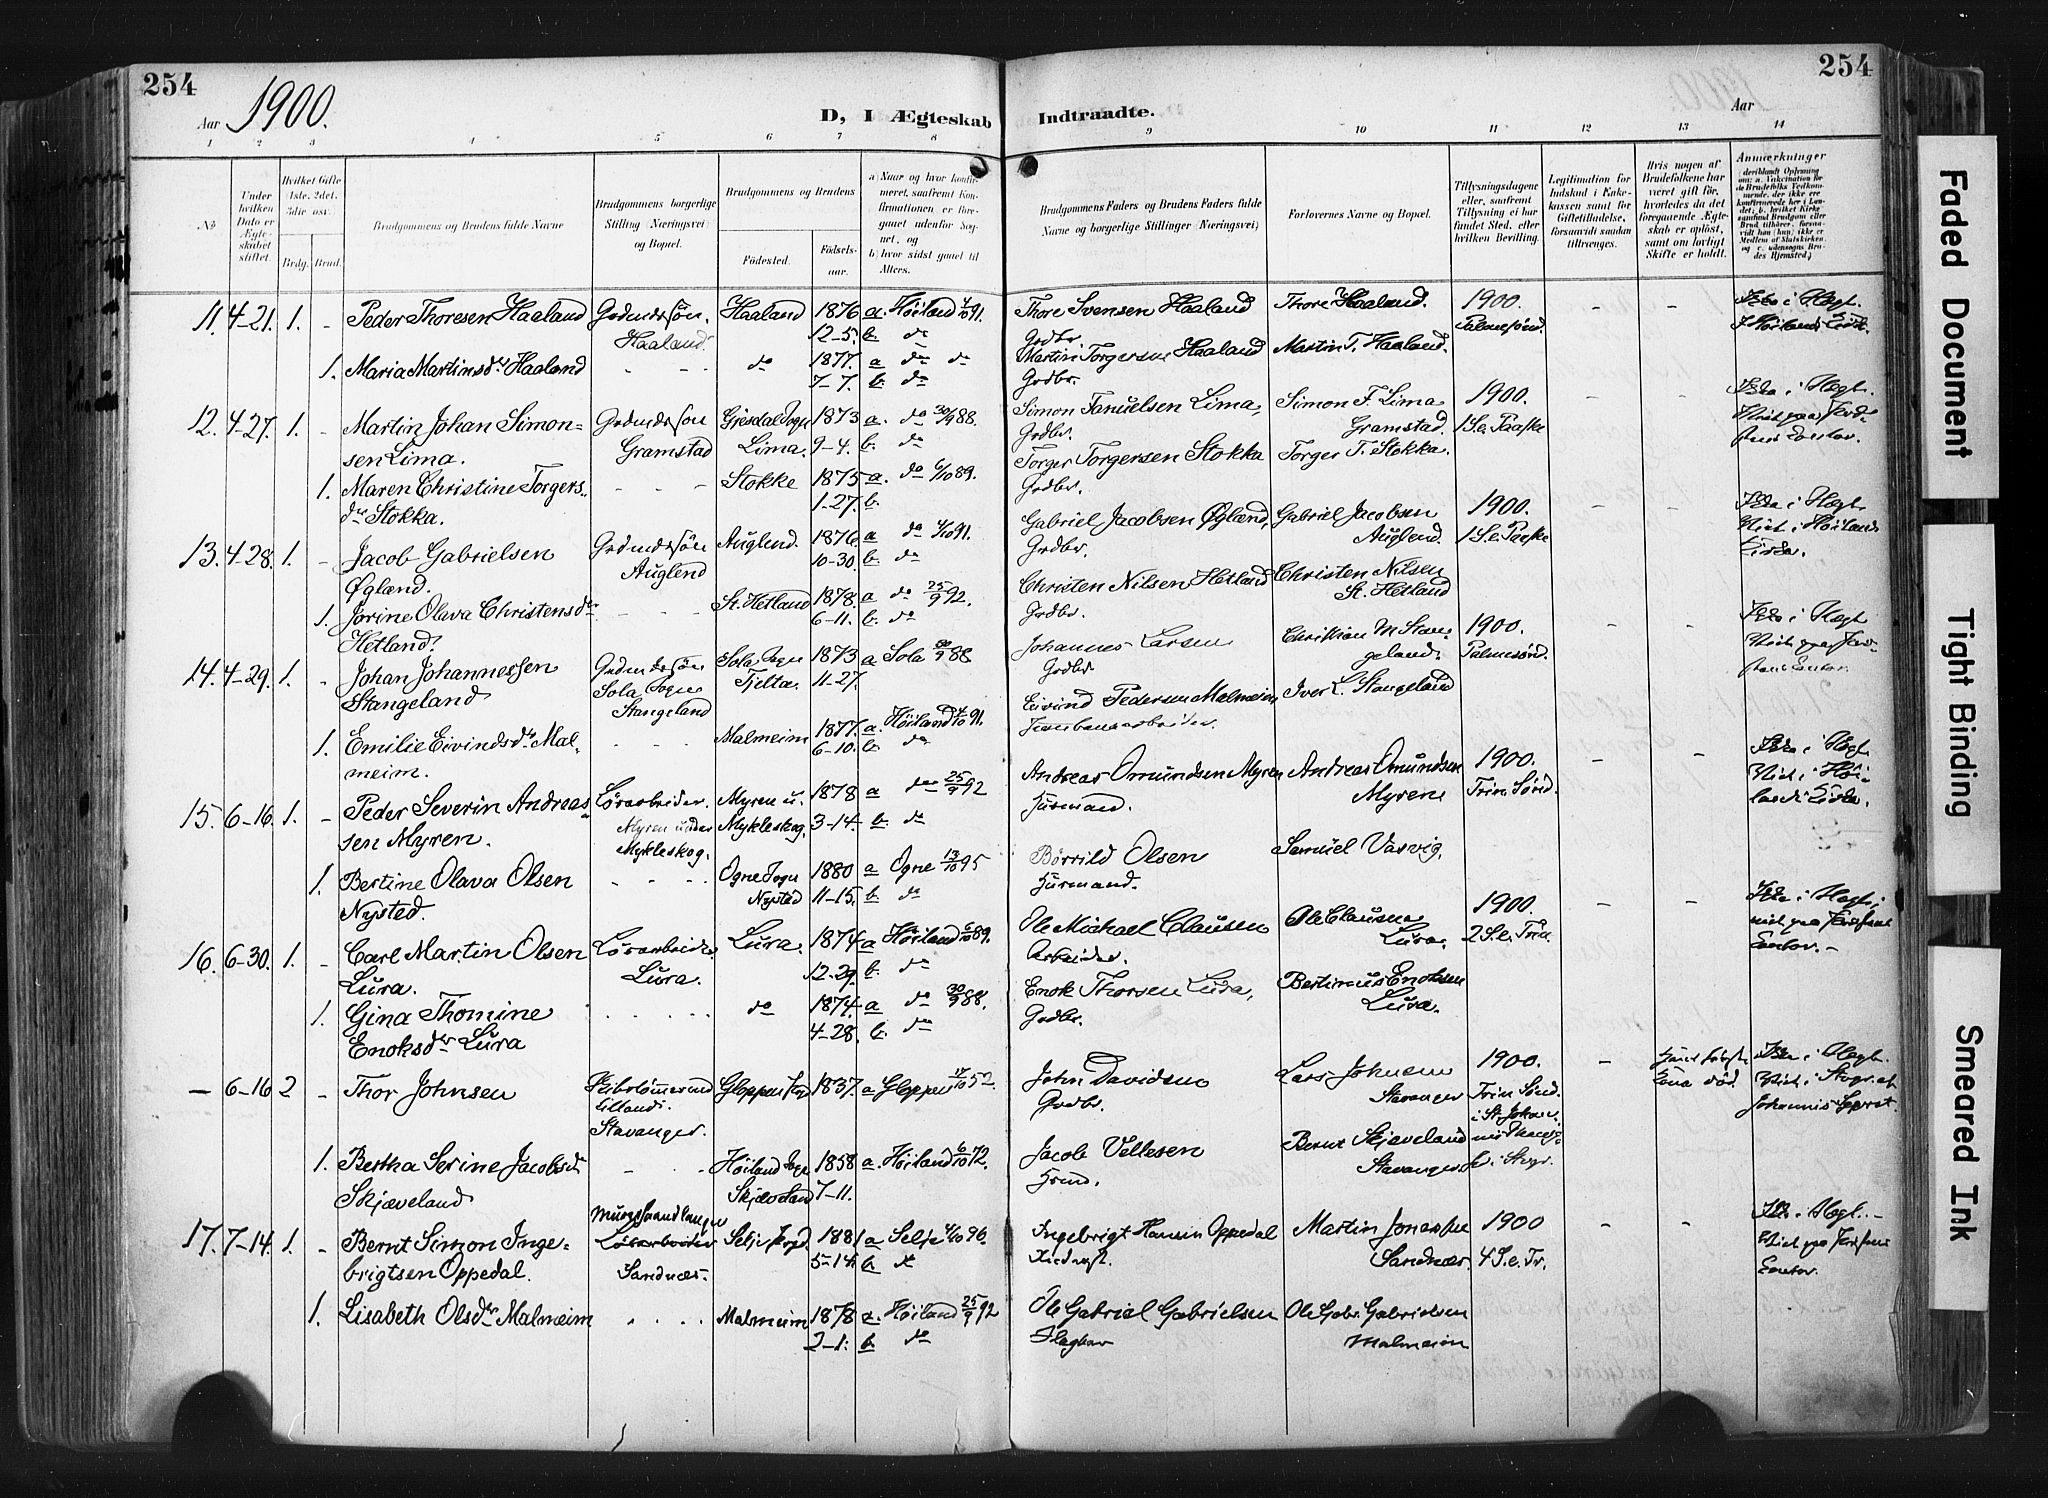 254
Aar 1900.
D, I Ægteskab
Indtraadte.
Aar
254
1 2 3 4 5 6 7 8 9 10 11 12 13 14
No
Under hvilken Dato er Ægteskabet stiftet.
Hvilket Gifte 1ste, 2det, 3die osv.
Brdg. Brud.
Brudgommens og Brudens fulde Navne
Brudgommens borgerlige Stilling (Næringsvei) og Bopæl.
Brudgommens og Brudens
Fødested.
Fødselsaar.
a) Naar og hvor konfirmeret, saafremt Konfirmationen er foregaaet udenfor Sognet, og
b) hvor sidst gaaet til Alters.
Brudgommens Faders og Brudens Faders fulde Navne og borgerlige Stillinger (Næringsvei)
Forlovernes Navne og Bopæl.
Tillysningsdagene eller, saafremt Tillysning ei har fundet Sted, efter hvilken Bevilling.
Legitimation for Indskud i Enkekassen samt for Giftetilladelse, forsaavidt saadan tiltrænges.
Hvis nogen af Brudefolkene har været gift før, hvorledes da det foregaaende Ægteskab er opløst, samt om lovligt Skifte er holdt.
Anmærkninger
11. 4-21. 1. - Peder Thoresen Haaland Grdmdssön. Haaland. Haaland 1876 12-5. a. Höiland 4/10 91. b. do Thore Svensen Haaland Grdbr. Thore Haaland. 1900. Palmesønd. - -
1. Maria Martinsdr Haaland - - - do 1877. 7-7. a do do b. do Martin Torgersen Haaland Grdbr. Martin T. Haaland.
12. 4-27. 1. - Martin Johan Simonsen Lima. Grdmdssön Gramstad Gjesdal Sogn Lima. 1873 9-4. a. do 30/9 88. b. do Simon Tanuelsen Lima, Grdbr. Simon F. Lima Gramstad. 1900. 1 S.e. Paaske - -
1. Maren Christine Torgersdr Stokka. - - - Stokke 1875 1-27. a. do 6/10 89. b. Torger Torgersen Stokka Grdbr. Torger T. Stokka.
13. 4-28. 1. - Jacob Gabrielsen Øglænd. Grdmdssön Auglend Auglend. 1876. 10-30. a do 4/10 91. b. do Gabriel Jacobsen Øglænd, Grdbr. Gabriel Jacobsen Auglend. 1900. 1 S.e. Paaske
1. Jorine Olava Christensdr Hetland. - - - St. Hetland 1878. 6-11. a do 25/9 92. b. do Christen Nilsen Hetland Grdbr. Christen Nilsen St. Hetland
14. 4-29. 1. - Johan Johannessen Stangeland Grdmdssön Sola Sogn Stangeland Sola Sogn Tjelta. 1873 11-27. a Sola 30/9 88 Johannes Larsen Grdbr Christian M. Stangeland. 1900. Palmesönd. - -
1. Emilie Eivindsdr Malmeim. - - - Malmeim 1877. 6-10. a. Höiland 4/10 91. b. do Eivind Pedersen Malmeim Jernbanearbeider. Iver L. Stangeland
15. 6-16. 1. - Peder Severin Andreassen Myren. Lösarbeider. Myren under Mykleskog. Myren u. Mykleskog. 1878 3-14. a do 25/9 92 b. do Andreas Omundsen Myren Husmand. Andreas Omundsen Myrene 1900. Trin. Sönd. - -
1. Bertine Olava Olsen Nysted. - - - Ogne Sogn Nysted 1880 11-15. a Ogne 13/10 95 b. do Börrild Olsen Husmand. Samuel Vasvig.
16. 6-30. 1. - Carl Martin Olsen Lura. Lösarbeider Lura. Lura. 1874 12-29. a Höiland 6/10 89. b. do Ole Michael Clausen Arbeider. Ole Clausen Lura. 1900. 2 S.e. Trin. - -
1. Gina Thomine Enoksdr Lura . . . . . do 1874. 4-28. a do 30/9 88. b. do Enok Thorsen Lura, Grdbr. Bertinius Enoksen Lura.
- 6-16 2 Thor Johnsen Stavanger. Gloppen 1837. a Gloppen 17/10 52. John Davidsen Grdbr. Lars Johnsen Stavanger 1900. Trin Sönd. -
1. Bertha Serine Jacobsdr Skjæveland - - - Höiland Sogn Skjæveland 1858 7-11. a. Höiland 6/10 72. Jacob Vellesen Husmd. Bernt Skjæveland Stavanger
17. 7-14. 1. - Bernt Simon Ingebrigtsen Oppedal. Murerhaandlanger Lösarbeider Sandnæs. Selje 1881 5-14. a Selje 4/10 96. b. Ingebrigt Hansen Oppedal Martin Jonassen Sandnæs. 1900 4 S.e. Tr. - -
1. Lisabeth Olsdr Malmeim . . . . Malmeim 1878 2-1. a. Höiland 25/9 92 b do Ole Gabriel Gabrielsen Ole Gabr. Gabrielsen Malmeim
Faded Document
Tight Binding
Smeared Ink